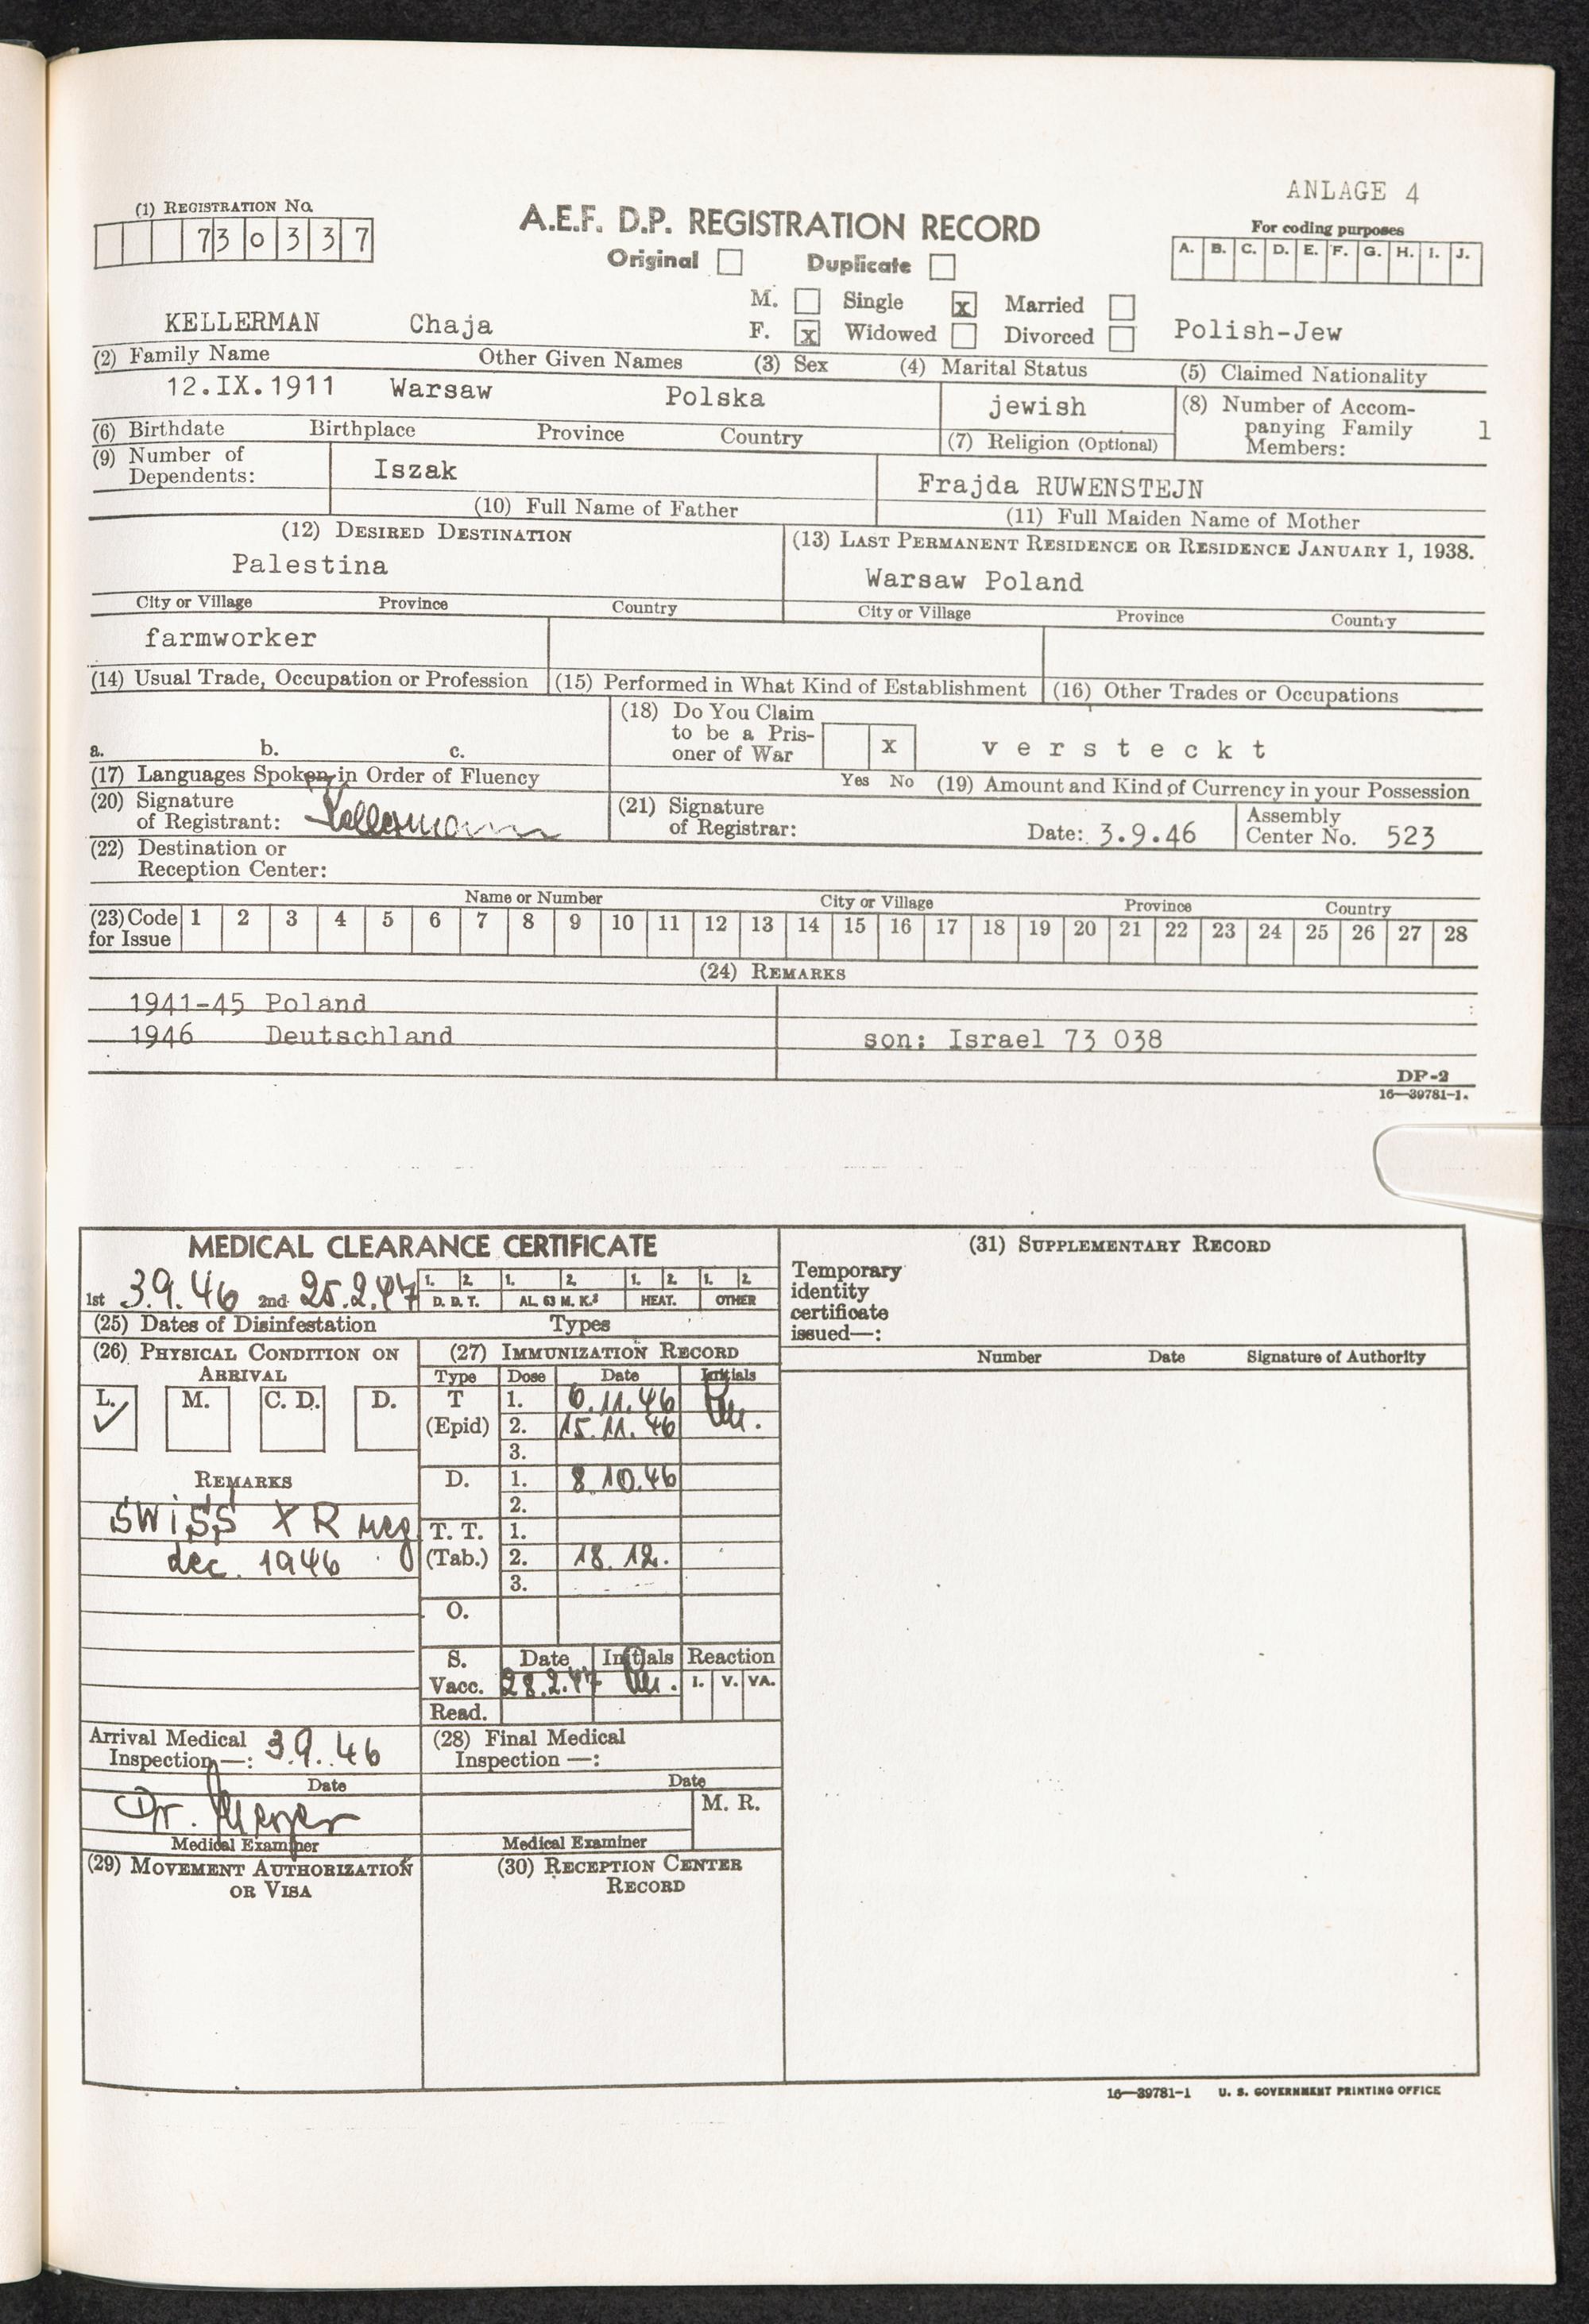 ANLAGE 4
(1) REGISTRATION NO.
7 3 0 3 3 7
A.E.F. D.P. REGISTRATION RECORD
Original Duplicate
For coding purposes
A. B. C. D. E. F. G. H. I. J.
M. Single x Married
KELLERMAN Chaja F. x Widowed Divorced Polish-Jew
(2) Family Name Other Given Names (3) Sex (4) Marital Status (5) Claimed Nationality
12.IX.1911 Warsaw Polska jewish
(6) Birthdate Birthplace Province Country (7) Religion (Optional)
(8) Number of Accom-
panying Family 1
Members:
(9) Number of
Dependents:
Iszak
(10) Full Name of Father
Frajda RUWENSTEJN
(11) Full Maiden Name of Mother
(12) DESIRED DESTINATION
Palestina
City or Village Province Country
(13) LAST PERMANENT RESIDENCE OR RESIDENCE JANUARY 1, 1938.
Warsaw Poland
City or Village Province Country
farmworker
(14) Usual Trade, Occupation or Profession (15) Performed in What Kind of Establishment (16) Other Trades or Occupations
a. b. c.
(17) Languages Spoken in Order of Fluency
(18) Do You Claim
to be a Pris-
oner of War
x
Yes No
v e r s t e c k t
(19) Amount and Kind of Currency in your Possession
(20) Signature
of Registrant: Kellermann
(21) Signature
of Registrar:
Date: 3.9.46
Assembly
Center No. 523
(22) Destination or
Reception Center:
Name or Number City or Village Province Country
(23) Code
for Issue
1 2 3 4 5 6 7 8 9 10 11 12 13 14 15 16 17 18 19 20 21 22 23 24 25 26 27 28
(24) REMARKS
1941-45 Poland
1946 Deutschland son: Israel 73 038
DP-2
16—39781-1.
MEDICAL CLEARANCE CERTIFICATE
1st 3.9.46 2nd 25.2.47
1. 2. 1. 2. 1. 2. 1. 2.
D. D. T. AL. 63 M. K.³ HEAT. OTHER
(25) Dates of Disinfestation Types
(26) PHYSICAL CONDITION ON
ARRIVAL
L. ✓ M. C. D. D.
REMARKS
SWISS XR neg
dec. 1946
(27) IMMUNIZATION RECORD
Type Dose Date Initials
T 1. 6.11.46
(Epid) 2. 15.11.46
3.
D. 1. 8 10.46
2.
T. T. 1.
(Tab.) 2. 18.12.
3.
O.
S. Date Initials Reaction
Vacc. 28.2.47 I. V. VA.
Read.
Arrival Medical
Inspection—: 3.9.46
Date
Dr. Meyer
Medical Examiner
(28) Final Medical
Inspection —:
Date
M. R.
Medical Examiner
(29) MOVEMENT AUTHORIZATION
OR VISA
(30) RECEPTION CENTER
RECORD
(31) SUPPLEMENTARY RECORD
Temporary
identity
certificate
issued—:
Number Date Signature of Authority
16—39781-1 U. S. GOVERNMENT PRINTING OFFICE